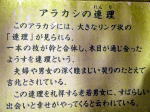 アラカシの連理
このアラカシには、大きなリング状の
「連理」が見られる。
一本の枝が幹と合体し、木目が通じ合ったよ
うすを連理という。
夫婦や男女の深く睦まじい契りのたとえで
吉兆とされている。
この連理を礼拝する老若男女に、すばらしい
出会いと幸せがやってくると言われている。